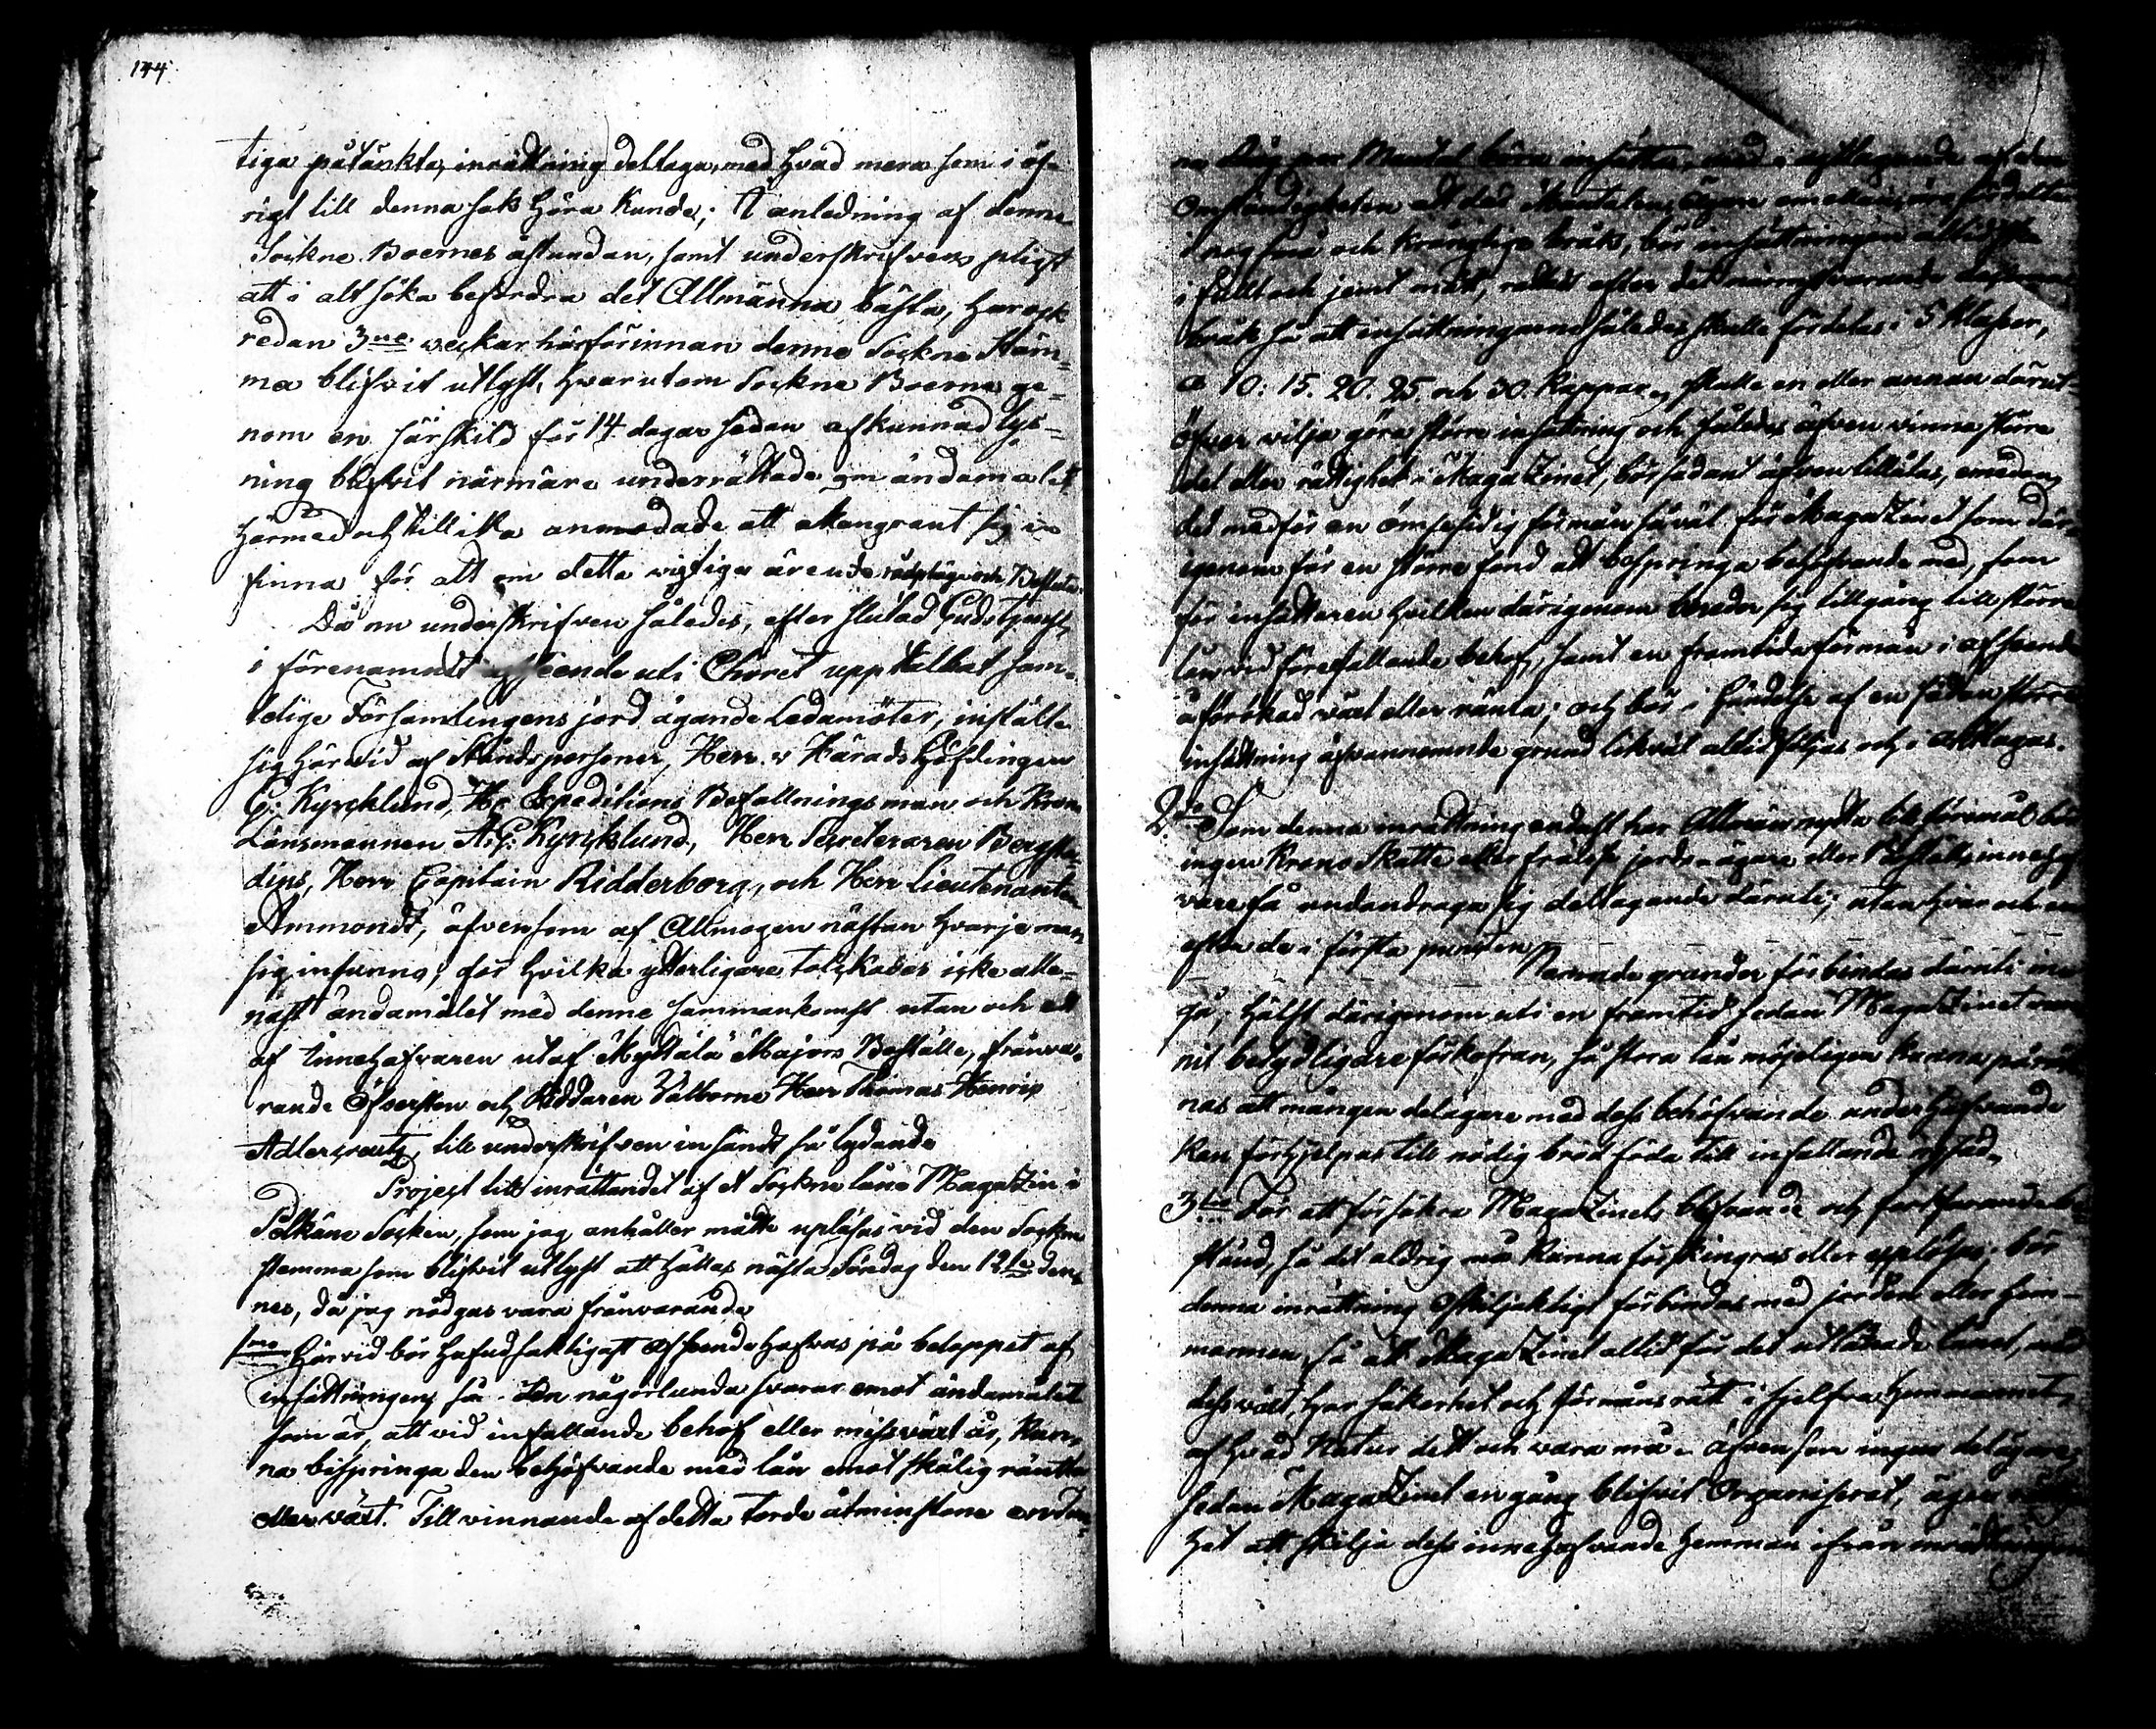 144.
tiga påtänkta, inrättning deltaga, med hvad mera som i öf-
rigt till denna sak höra kunde; I anledning af denne
Sockne Boernes åstundan, samt underskrifvens pligt
att i alt söka befordra det Allmänna bästa, har ock
redan 3ne veckar härförinnan denne Sockne Stäm-
ma blifvit utlyst, hvarutom Sockne Boerne ge-
nom en särskild för 14 dagar sedan afkunnad lys-
ning blifvit närmare underrättade om ändamålet
härmed och tillika anmodade att Mangrant sig in-
finna för att om detta vigtiga ärende rådpläga och Besluta.
Då nu underskrifven således, efter slutad Gudstjenst,
i förenämndt afseende uti Choret uppkallat sam-
telige Församlingens jord ägande Ledamöter, inställte
sig härvid af Ståndspersoner, Herr v Härads Höfdingen
G: Kyrcklund, Hr Expeditions Befallningsman och Krono
Länsmannen A: G: Kyrcklund, Herr Secreteraren Bergsta-
dius, Herr Capitain Ridderborg, och Herr Lieutenanten
Ammondt, äfvensom af Allmogen nästan hvarje man
sig infunno; för hvilka ytterligare tolckades icke alle-
nast ändamålet med denne sammankomst utan och ett
af innehafvaren utaf Myttälä Majors Boställe, frånva-
rande Öfversten och Riddaren Välborne Herr Thomas Henric
Adlercreutz, till underskrifven insändt så lydande
Project till inrättandet af et Sockne låne MagaZin i
Pelkäne Socken, som jag anhåller måtte upläsas vid den Sockne
stemma som blifvit utlyst att hållas nästa Söndag den 12te den-
nes, då jag nödgas vara frånvarande
1mo Härvid bör hufudsakligast afseende hafvas på beloppet af
insättningen, så den någorlunda svarar emot ändamålet
som är, att vid infallande behof eller missväxt år, kun-
na bispringa den behöfvande med lån emot skälig ränta
eller växt. Till vinnande af detta torde åtminstone en tun-
na Råg per Mantal böra insättas, med iakttagande af den
Omständigheten att då Mantalens ägare emellan äro fördelta
i nog små och krånglige bråk, bör insättningen alltid
i fullt och jemt mått, rättas efter det närmst varande
bråk så att insättningarne således skulle fördelas i 5 Klasser,
a 10: 15. 20. 25. och 30 Kappar, skulle en eller annan därut-
öfver vilja göra större insättning och således äfven vinna större
del eller rättighet i MagaZinet, bör sådant äfven tillåtas, emedan
det medför en ömsesidig förmån såväl för MagaZinet som där-
igenom får en större fond att bespringa behöfvande med, som
för insättaren hvilken därigenom bereder sig tillgång till större
lån vid förefallande behof, samt en framtida förmån i afseende
å förökad växt eller ränta; och bör i händelse af en sådan större
insättning ofvannemnde grund likväl alltid följas och i akttagas.
2do Som denna inrättning endast har Allmän nytta till föremål bör
ingen Krono Skatte eller frälse jords-ägare eller Boställs innehaf-
vare få undandraga sig deltagande däruti; utan hvar och en
efter de i första puncten
namnde grunder förbindas däruti in-
gå, hälst därigenom uti en framtid sedan MagaZinet vun-
nit betydligare förkofran, så stora lån möjeligen kunna på räk-
nas att mången delägare med dess behöfvande underhafvande
kan förhjelpas till nödig brödföda till infallande nyskörd.
3tio För att försäkra MagaZinets blifvande och fortfarande be-
stånd, så det aldrig må kunna förskingras eller upplösas; bör
denna inrättning oskiljaktligt förbindas med jorden eller hem-
mannen, så att MagaZinet alltid för det utlånade lånet, med
dess växt, har säkerhet och förmåns rätt i sjelfva hemmanet,
af hvad Natur dett och vara må. äfvensom ingen delägare,
sedan MagaZinet en gång blifvit Organiserat, ägen rättig-
het att skilja dess innehafvande hemman ifrån inrättningen